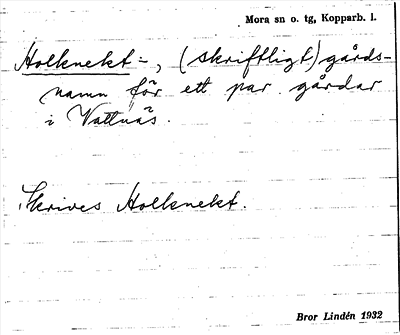 Mora sn o. tg, Kopparb. l.
Holknekt-, (skriftligt) gårds-
namn för ett par gårdar
i Vattnäs.
Skrives Holknekt.
Bror Lindén 1932